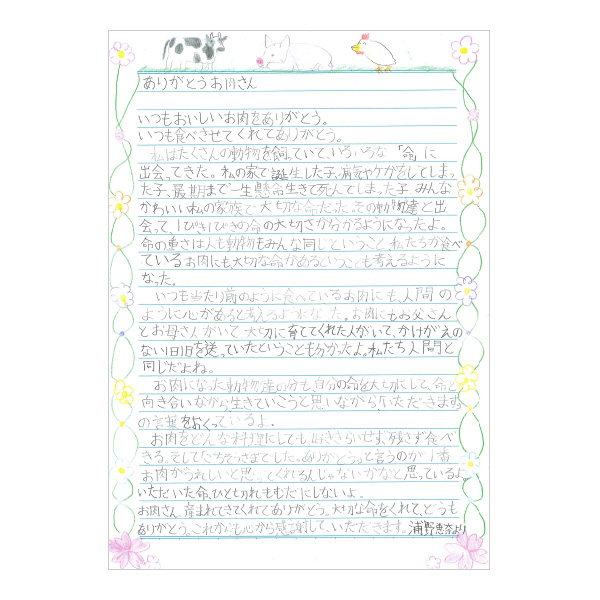 ありがとうお肉さん
いつもおいしいお肉をありがとう。
いつも食べさせてくれてありがとう。
私はたくさんの動物を飼っていて、いろいろな「命」に
出会ってきた。私の家で誕生した子、病気やケガをしてしまっ
た子、最期まで一生懸命生きて死んでしまった子。みんな
かわいい私の家族で大切な命だった。その動物達と出
会って、1ぴき1ぴきの命の大切さが分かるようになったよ。
命の重さは人も動物もみんな同じということ、私たちが食べ
ているお肉にも大切な命があるということも考えるように
なった。
いつも当たり前のように食べているお肉にも、人間の
ように心があると考えるようになった。お肉にもお父さん
とお母さんがいて大切に育ててくれた人がいて、かけがえの
ない日々を送っていたということも分かったよ。私たち人間と
同じだよね。
お肉になった動物達の分も、自分の命を大切にして、命と
向き合いながら生きていこうと思いながら「いただきます」
の言葉をおくっているよ。
お肉をどんな料理にしても好ききらいせず、残さず食べ
きる。そして「ごちそうさまでした。ありがとう。」と言うのが1番
お肉がうれしいと思ってくれるんじゃないかなと思っているよ。
いただいた命、ひと切れもむだにしないよ。
お肉さん、産まれてきてくれてありがとう。大切な命をくれて、どうも
ありがとう。これからも心から感謝して、いただきます。浦野恵奈より